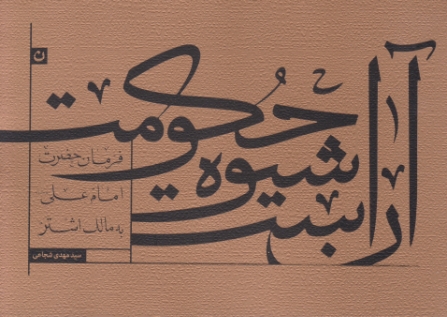 آراست
شیوه
حکومت
فرمان حضرت
امام علی
به مالک اشتر
سید مهدی شجاعی